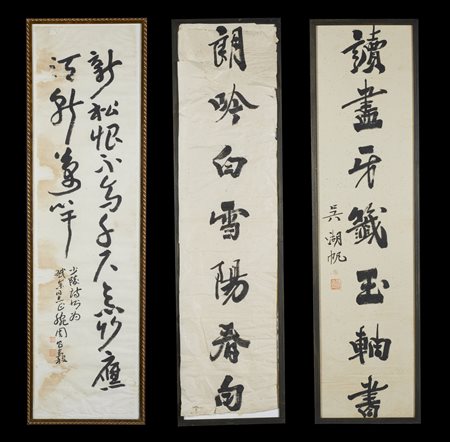 讀盡牙籤玉軸書
吳湖帆
朗吟白雪陽春句
新松恨不高千尺惡竹應
須斬萬竿
少陵詩句為